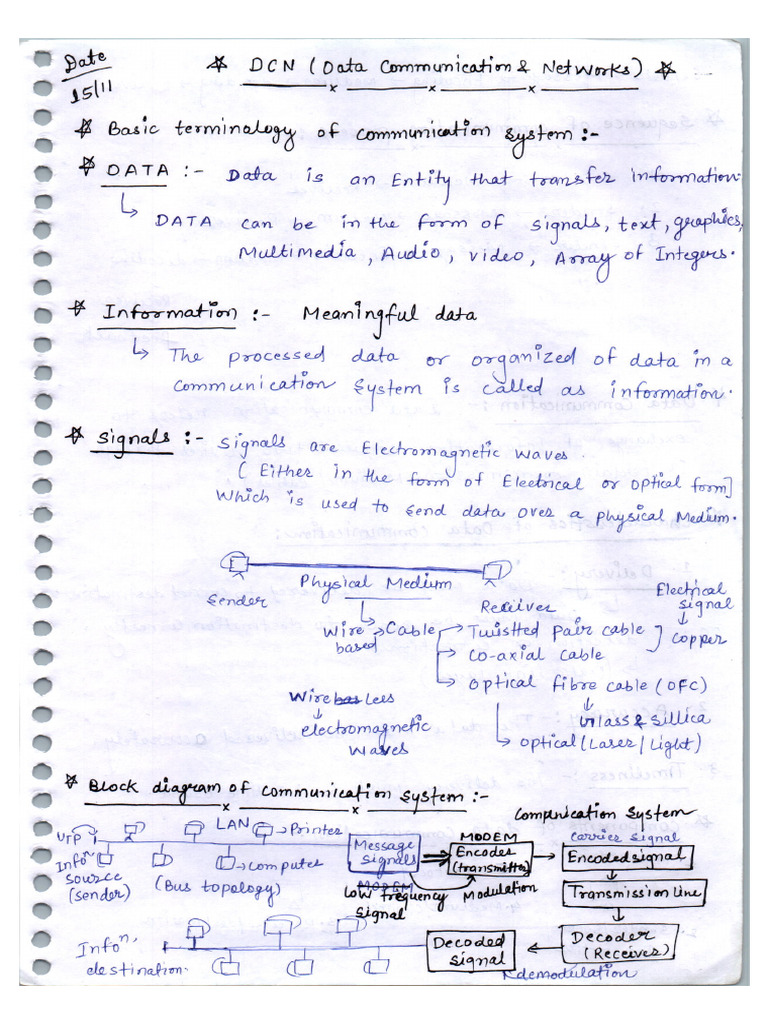 Date
15/11
☆ DCN (Data Communication & Networks) ☆
☆ Basic terminology of communication system:-
☆ DATA :- Data is an Entity that transfer information.
↳ DATA can be in the form of signals, text, graphics,
Multimedia, Audio, video, Array of Integers.
☆ Information :- Meaningful data
↳ The processed data or organized of data in a
communication system is called as information.
☆ Signals :- Signals are Electromagnetic waves.
( Either in the form of Electrical or optical form]
Which is used to send data over a physical Medium.
Sender
Physical Medium
Receiver
Electrical
signal
↓
copper
Wire
based
→ Cable
→ Twistted pair cable
→ co-axial cable
→ optical fibre cable (OFC)
↓
Glass & Sillica
→ optical (Laser / Light)
Wire bas Less
↓
electromagnetic
waves
☆ Block diagram of communication system :-
UTP
LAN
→ Printer
→ computer
Infoⁿ
source
(sender)
(Bus topology)
Message
signals
MODEM
Low frequency
signal
MODEM
Encoder
(transmitter)
Modulation
Compunication System
carrier signal
Encoded signal
Transmission line
Decoder
(Receiver)
demodulation
Decoded
signal
Infoⁿ.
destination.